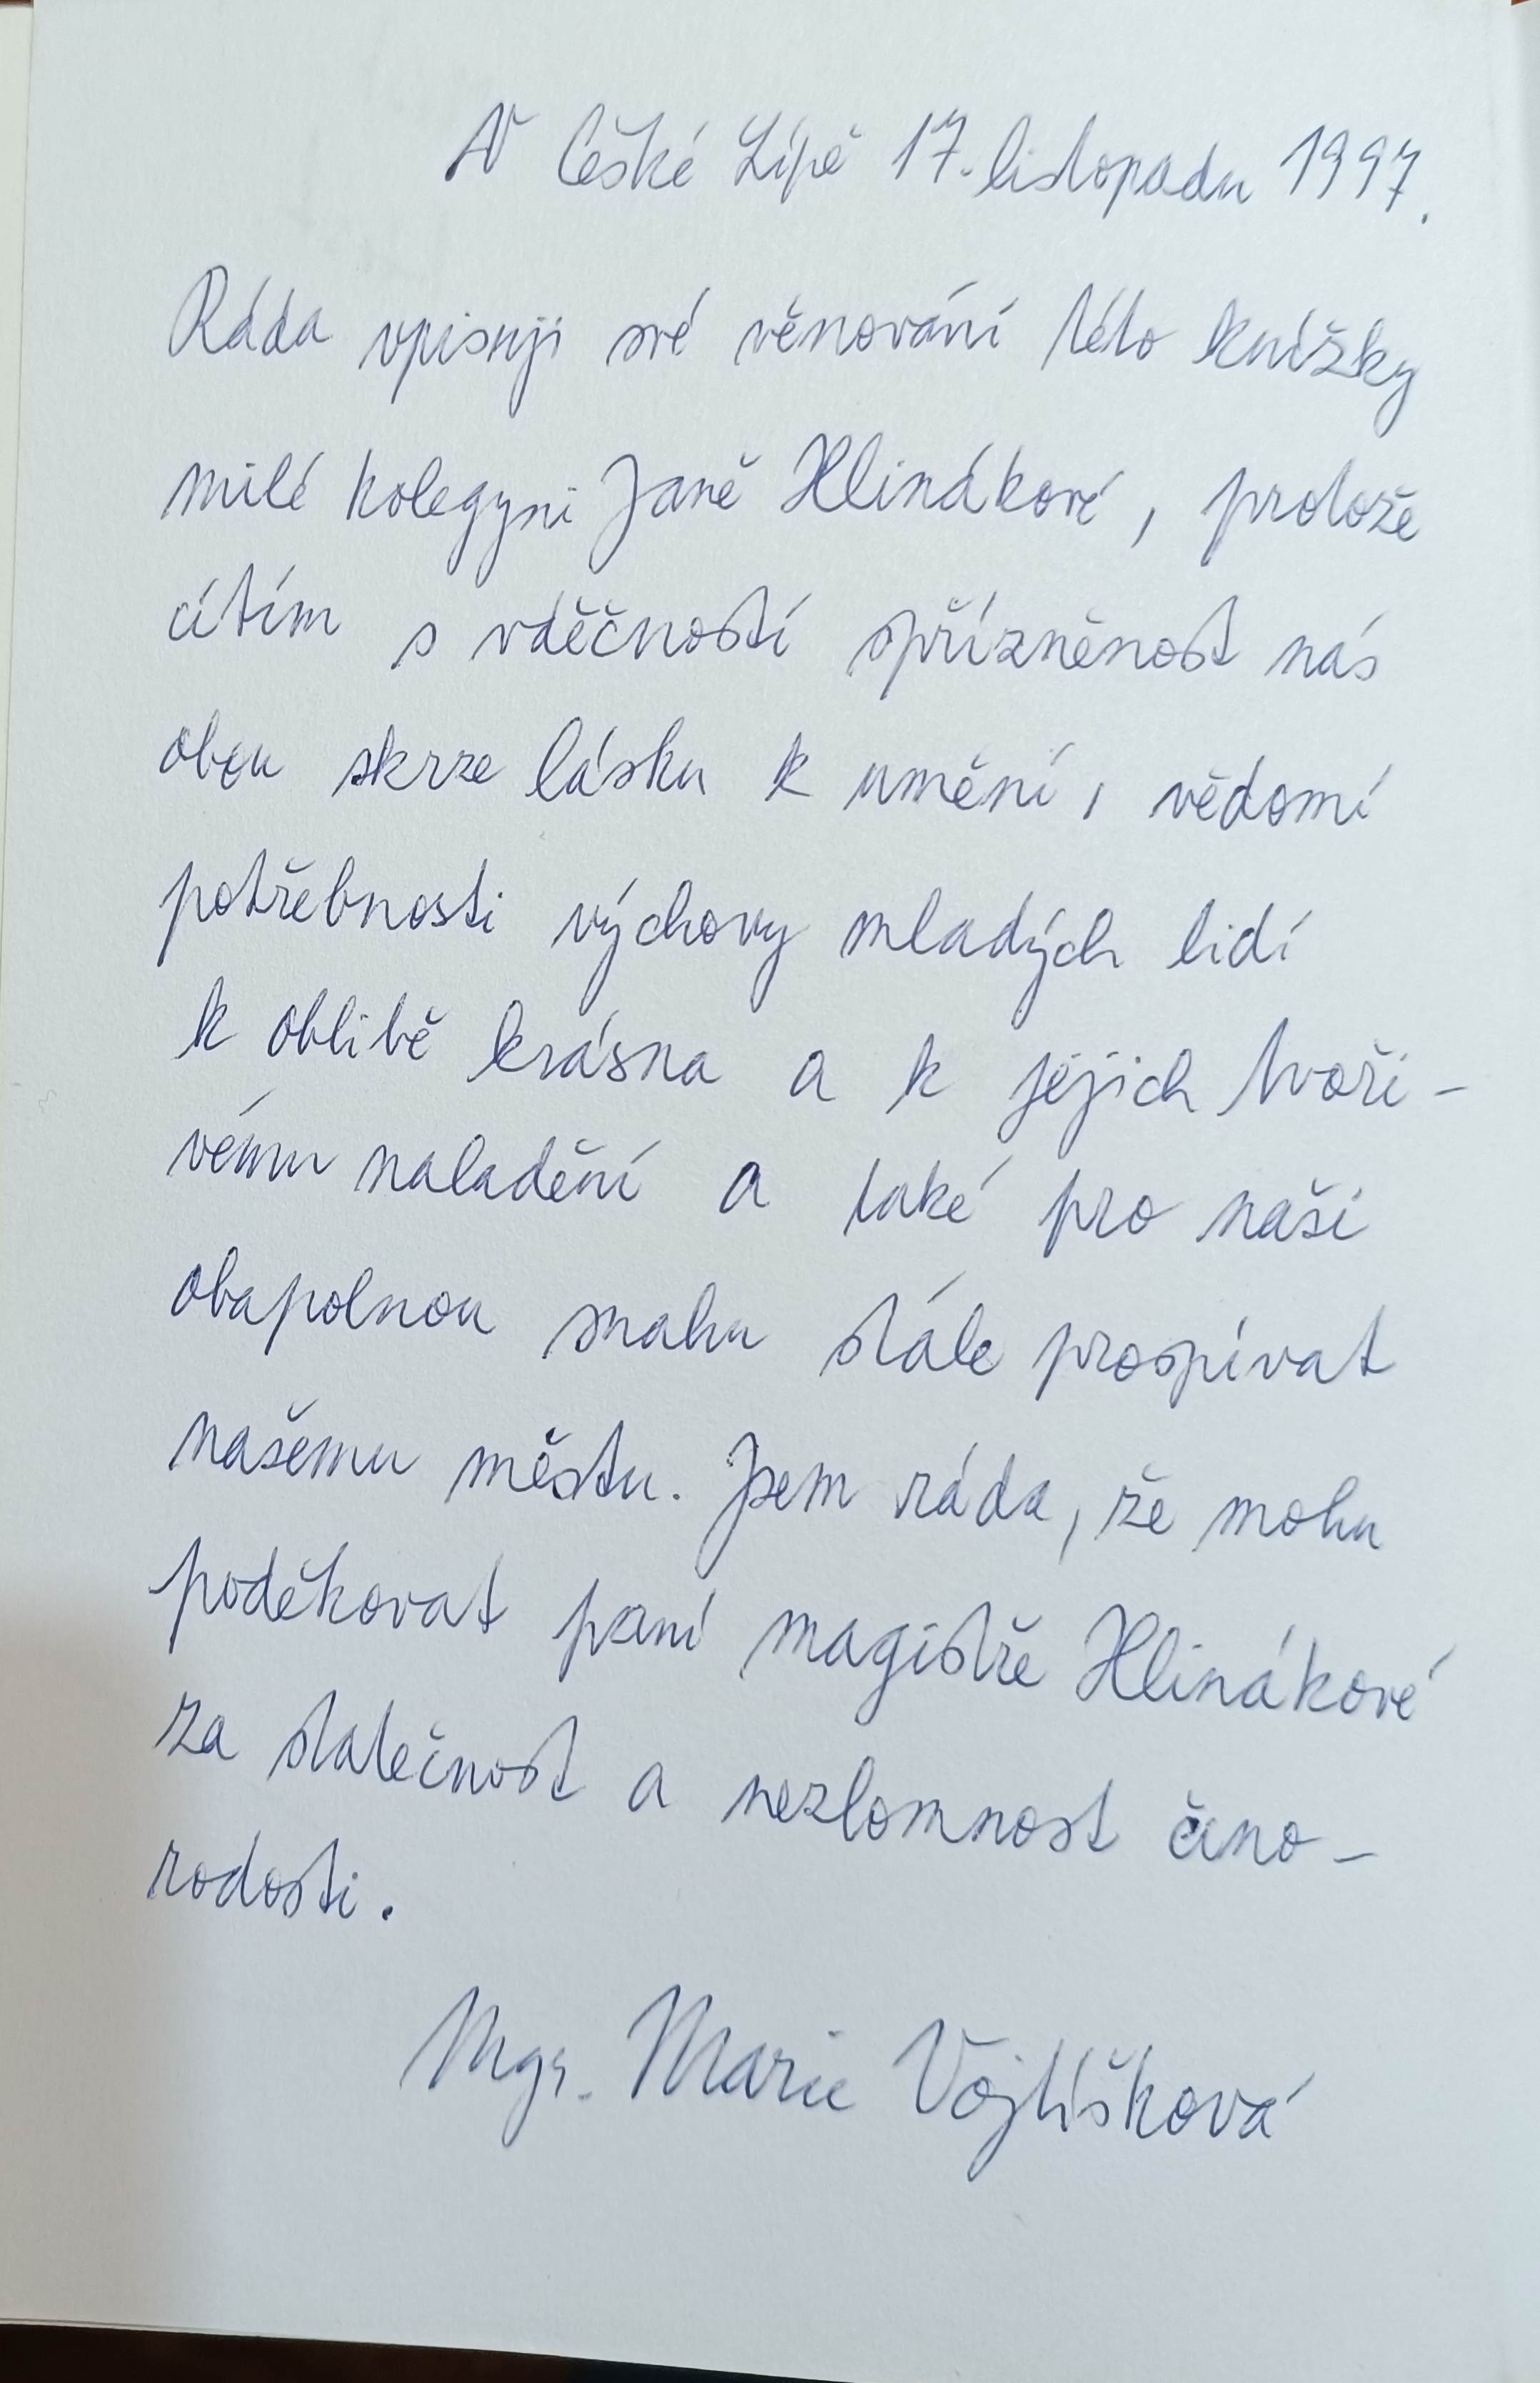 V České Lípě 17. listopadu 1997.
Ráda vpisuji své věnování této knížky
milé kolegyni Janě Hlinákové, protože
cítím s vděčností spřízněnost nás
obou skrze lásku k umění, vědomí
potřebnosti výchovy mladých lidí
k oblibě krásna a k jejich tvoři-
vému naladění a také pro naši
obapolnou snahu stále prospívat
našemu městu. Jsem ráda, že mohu
poděkovat paní magistře Hlinákové
za statečnost a nezlomnost čino-
rodosti.
Mgr. Marie Vojtíšková